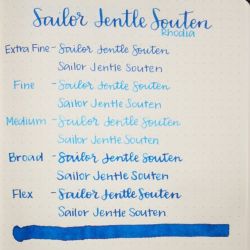 Sailor Jentle Souten
Rhodia
Extra Fine - Sailor Jentle Souten
Sailor Jentle Souten
Fine - Sailor Jentle Souten
Sailor Jentle Souten
Medium - Sailor Jentle Souten
Sailor Jentle Souten
Broad - Sailor Jentle Souten
Sailor Jentle Souten
Flex - Sailor Jentle Souten
Sailor Jentle Souten